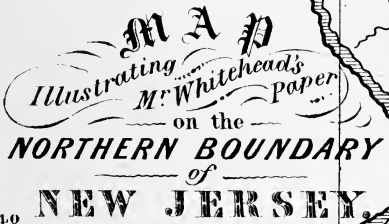 MAP
Illustrating Mr. Whitehead's Paper
on the
NORTHERN BOUNDARY
of
NEW JERSEY.